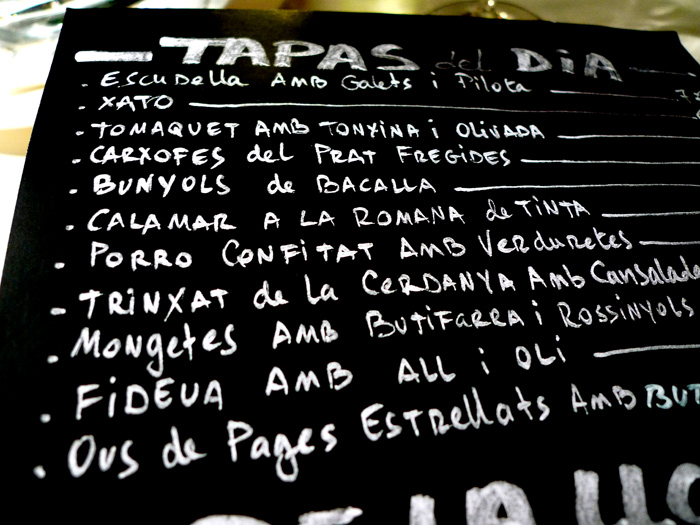 TAPAS del DiA
. ESCUDELLA AMB GALETS i PiLOTA
. XATO
. TOMAQUET AMB TONYINA i OLIVADA
. CARXOFES del PRAT FREGIDES
. BUNYOLS de BACALLA
. CALAMAR A LA ROMANA de TiNTA
. PORRO CONFITAT AMB VERDURETES
. TRiNXAT de La CERDANYA AMB Cansalada
. MONgeTES AMB BUTiFARRA i ROSSINYOLS
. FiDEUA AMB ALL i OLi
. OUS de PAGES ESTRELLATS AMB BUT